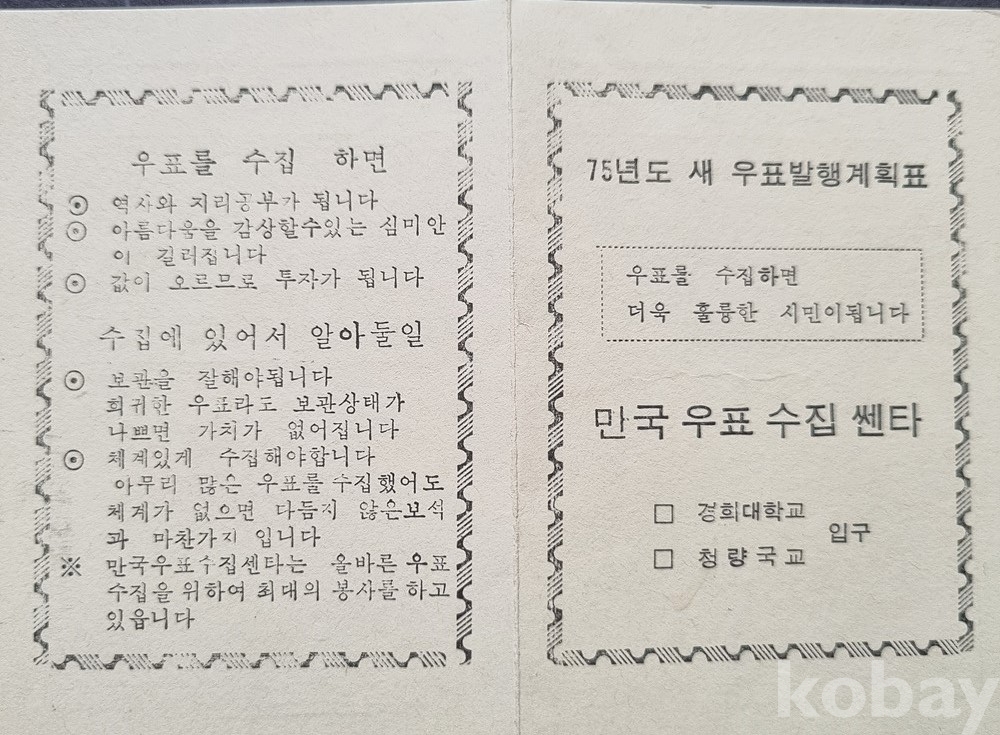 우표를 수집 하면
⊙ 역사와 지리공부가 됩니다
⊙ 아름다움을 감상할수있는 심미안
이 길러집니다
⊙ 값이 오르므로 투자가 됩니다
수집에 있어서 알아둘일
⊙ 보관을 잘해야됩니다
희귀한 우표라도 보관상태가
나쁘면 가치가 없어집니다
⊙ 체계있게 수집해야합니다
아무리 많은 우표를 수집했어도
체계가 없으면 다듬지 않은보석
과 마찬가지 입니다
※ 만국우표수집쎈타는 올바른 우표
수집을 위하여 최대의 봉사를 하고
있읍니다
75년도 새 우표발행계획표
우표를 수집하면
더욱 훌륭한 시민이됩니다
만국 우표 수집 쎈타
□ 경희대학교
입구
□ 청량국교
kobay